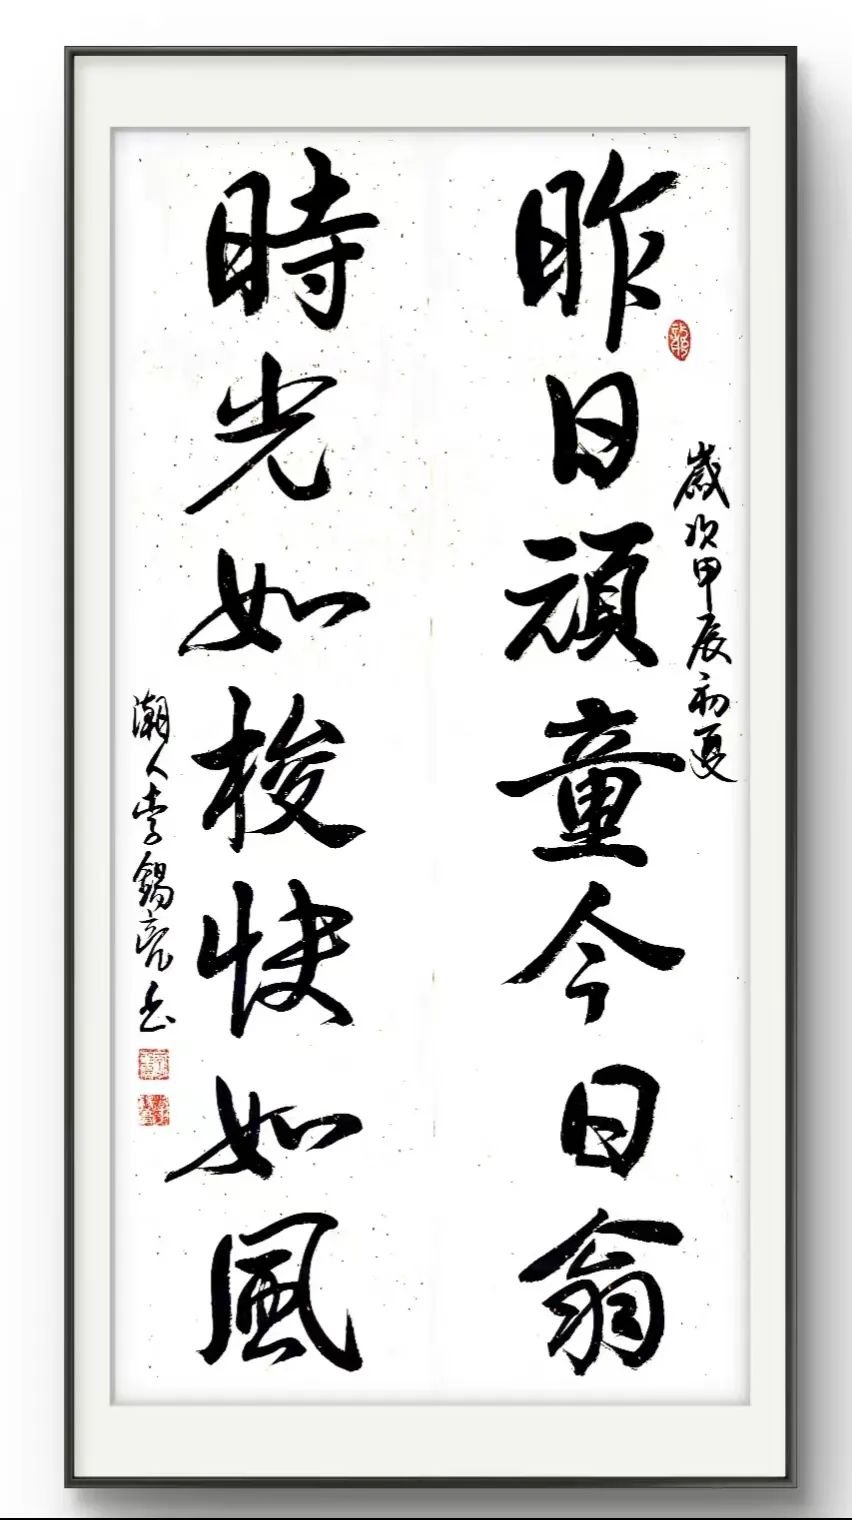 昨日頑童今日翁
歲次甲辰初夏
時光如梭快如風
潮人李錫亮书